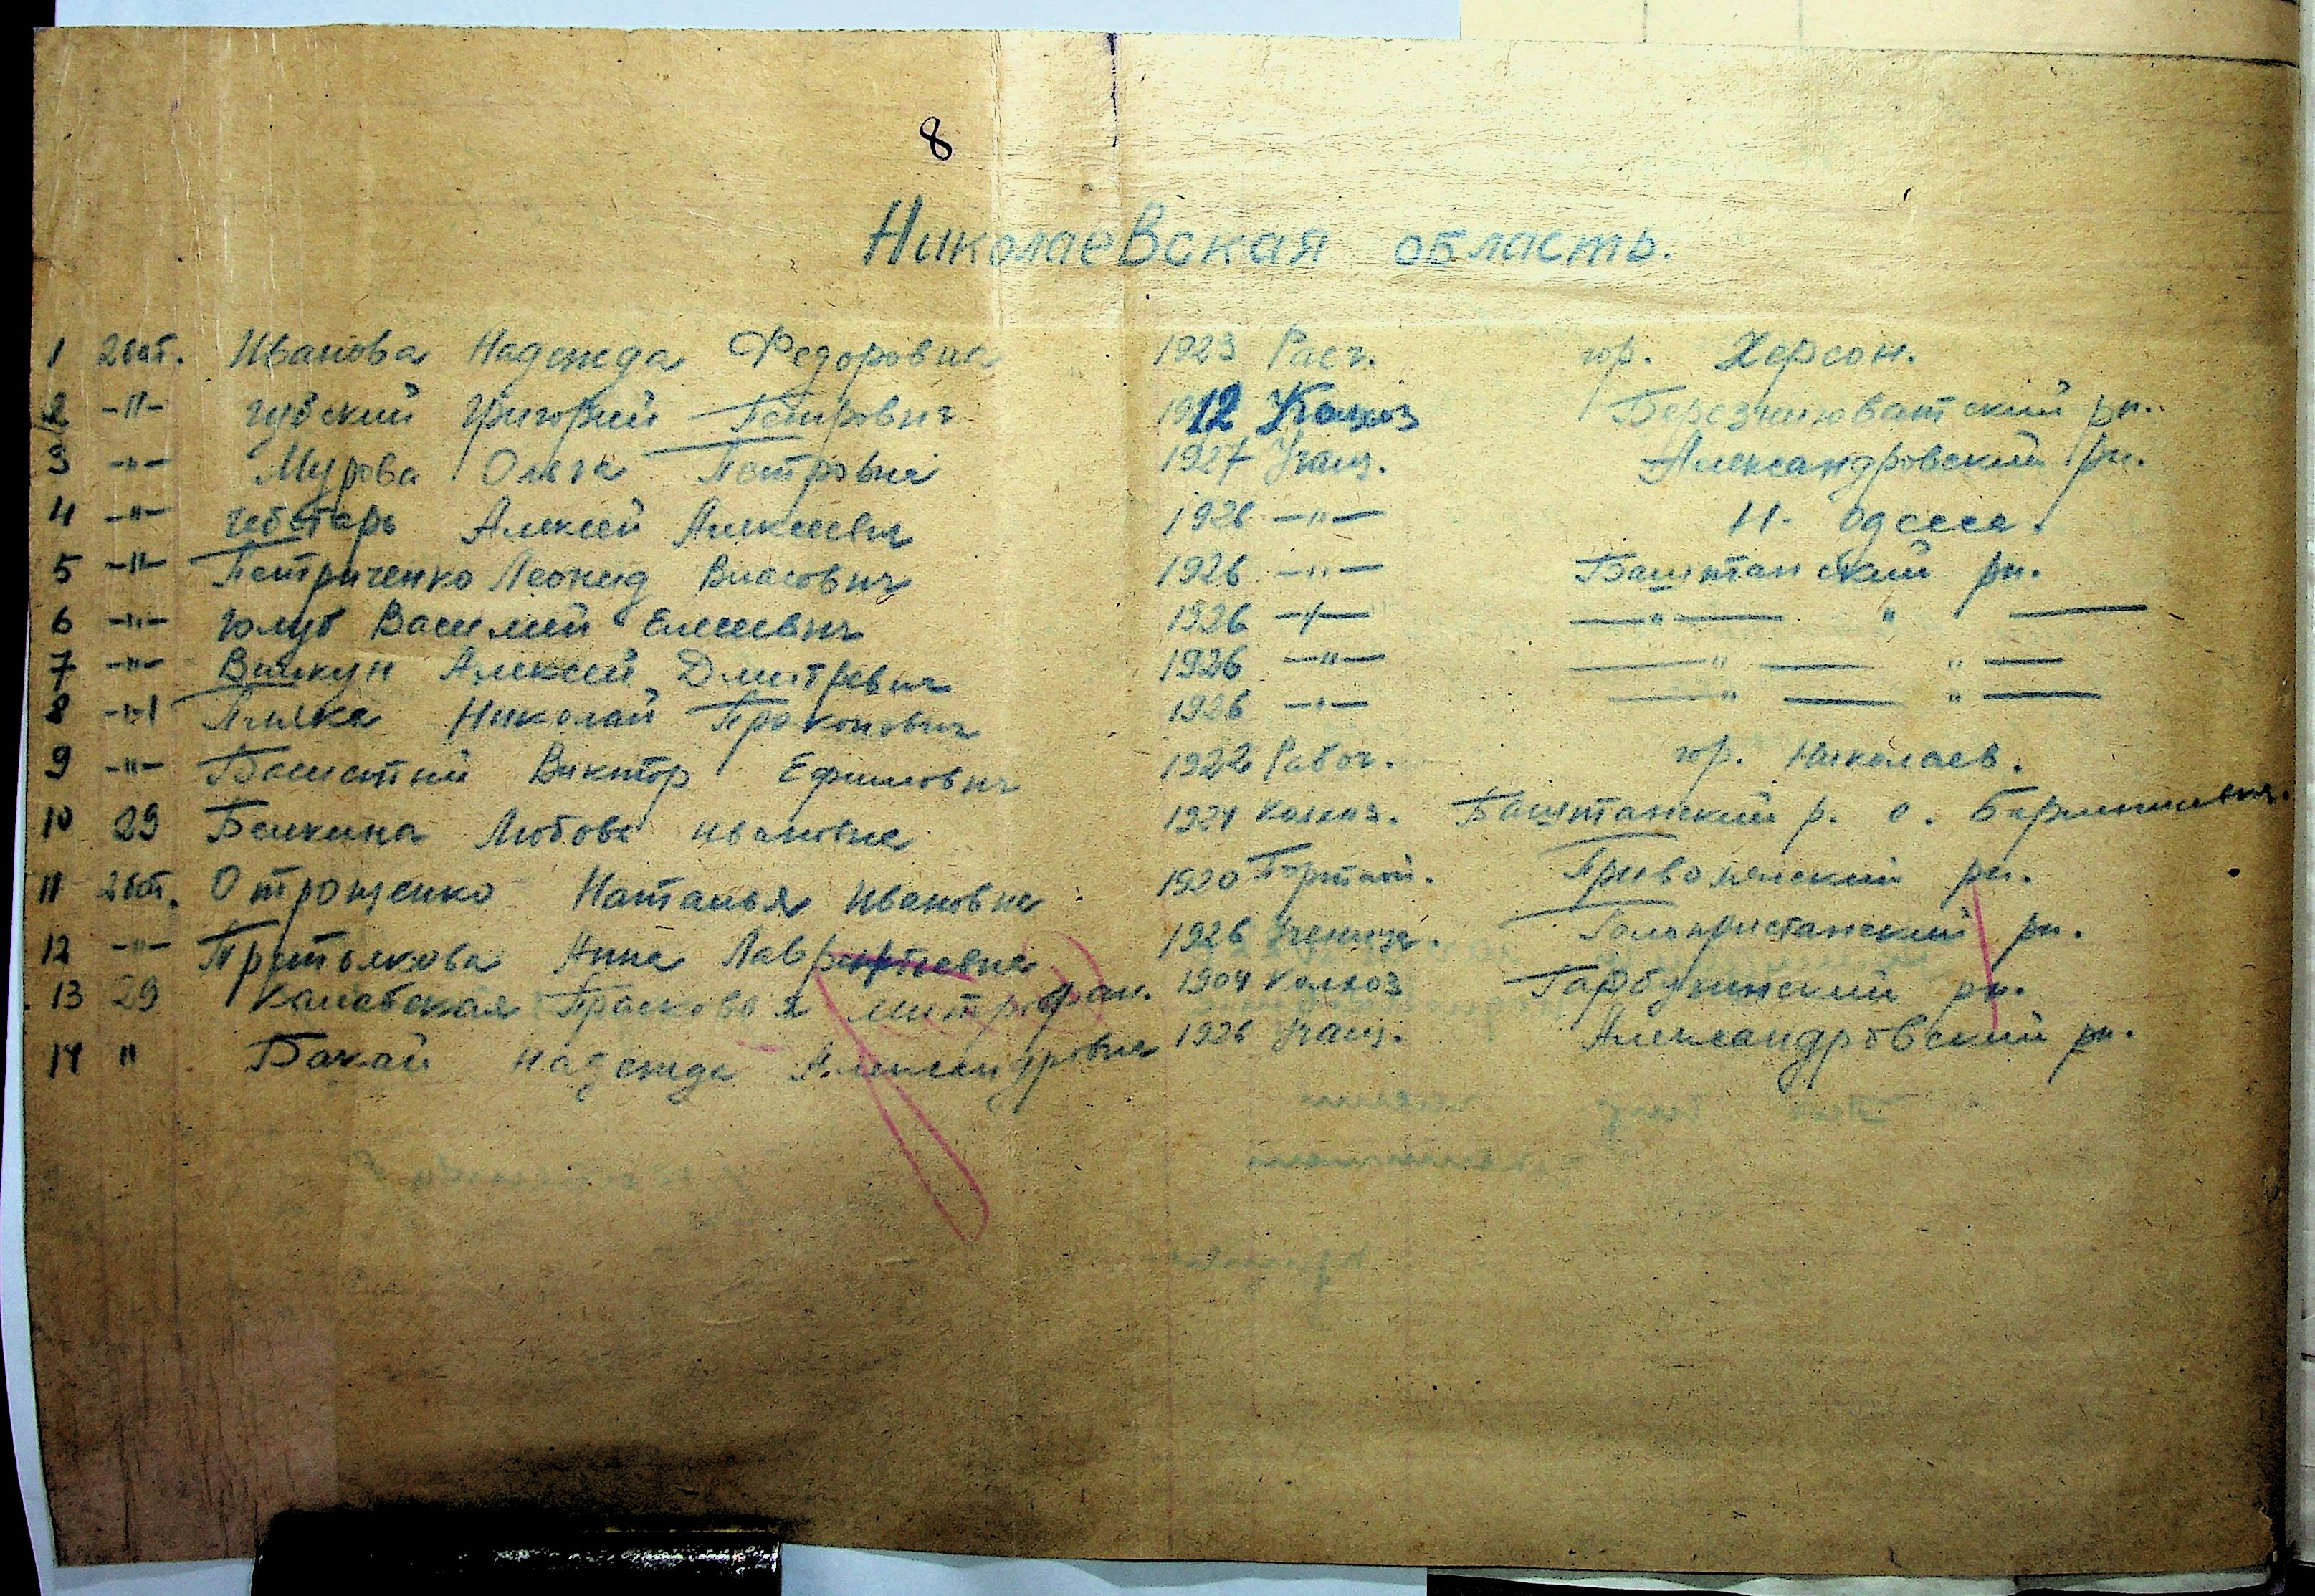 8
Николаевская область.
1 2 бат. Иванова Надежда Федоровна 1923 Расч. гор. Херсон.
2 -"- Губский Григорий Петрович 1912 Колхоз Березниговатский рн.
3 -"- Мурова Ольга Петровна 1927 Учащ. Александровский рн.
4 -"- Чеботарь Алексей Алексеевич 1926 -"- Н. Одесса.
5 -"- Петриченко Леонид Власович 1926 -"- Баштанский рн.
6 -"- Голуб Василий Елисеевич 1926 -"- -"- "-
7 -"- Вилкун Алексей Дмитревич 1926 -"- -"- "-
8 -"- Николай Проконович 1926 -"- -"- "-
9 -"- Виктор Ефимович 1922 Рабоч. гор. Николаев.
10 29 Белкина Любовь Ивановна 1924 колхоз. Баштанский р. с.
11 2 бат. Отрощенко Наталья Ивановна 1920 Привольнский рн.
12 -"- Анна Лаврентьевна 1926 Учениця. Голопристанский рн.
13 29 Прасковья Митрофан. 1904 Колхоз рн.
14 " Бакай Надежда Александровна 1926 Учащ. Александровский рн.